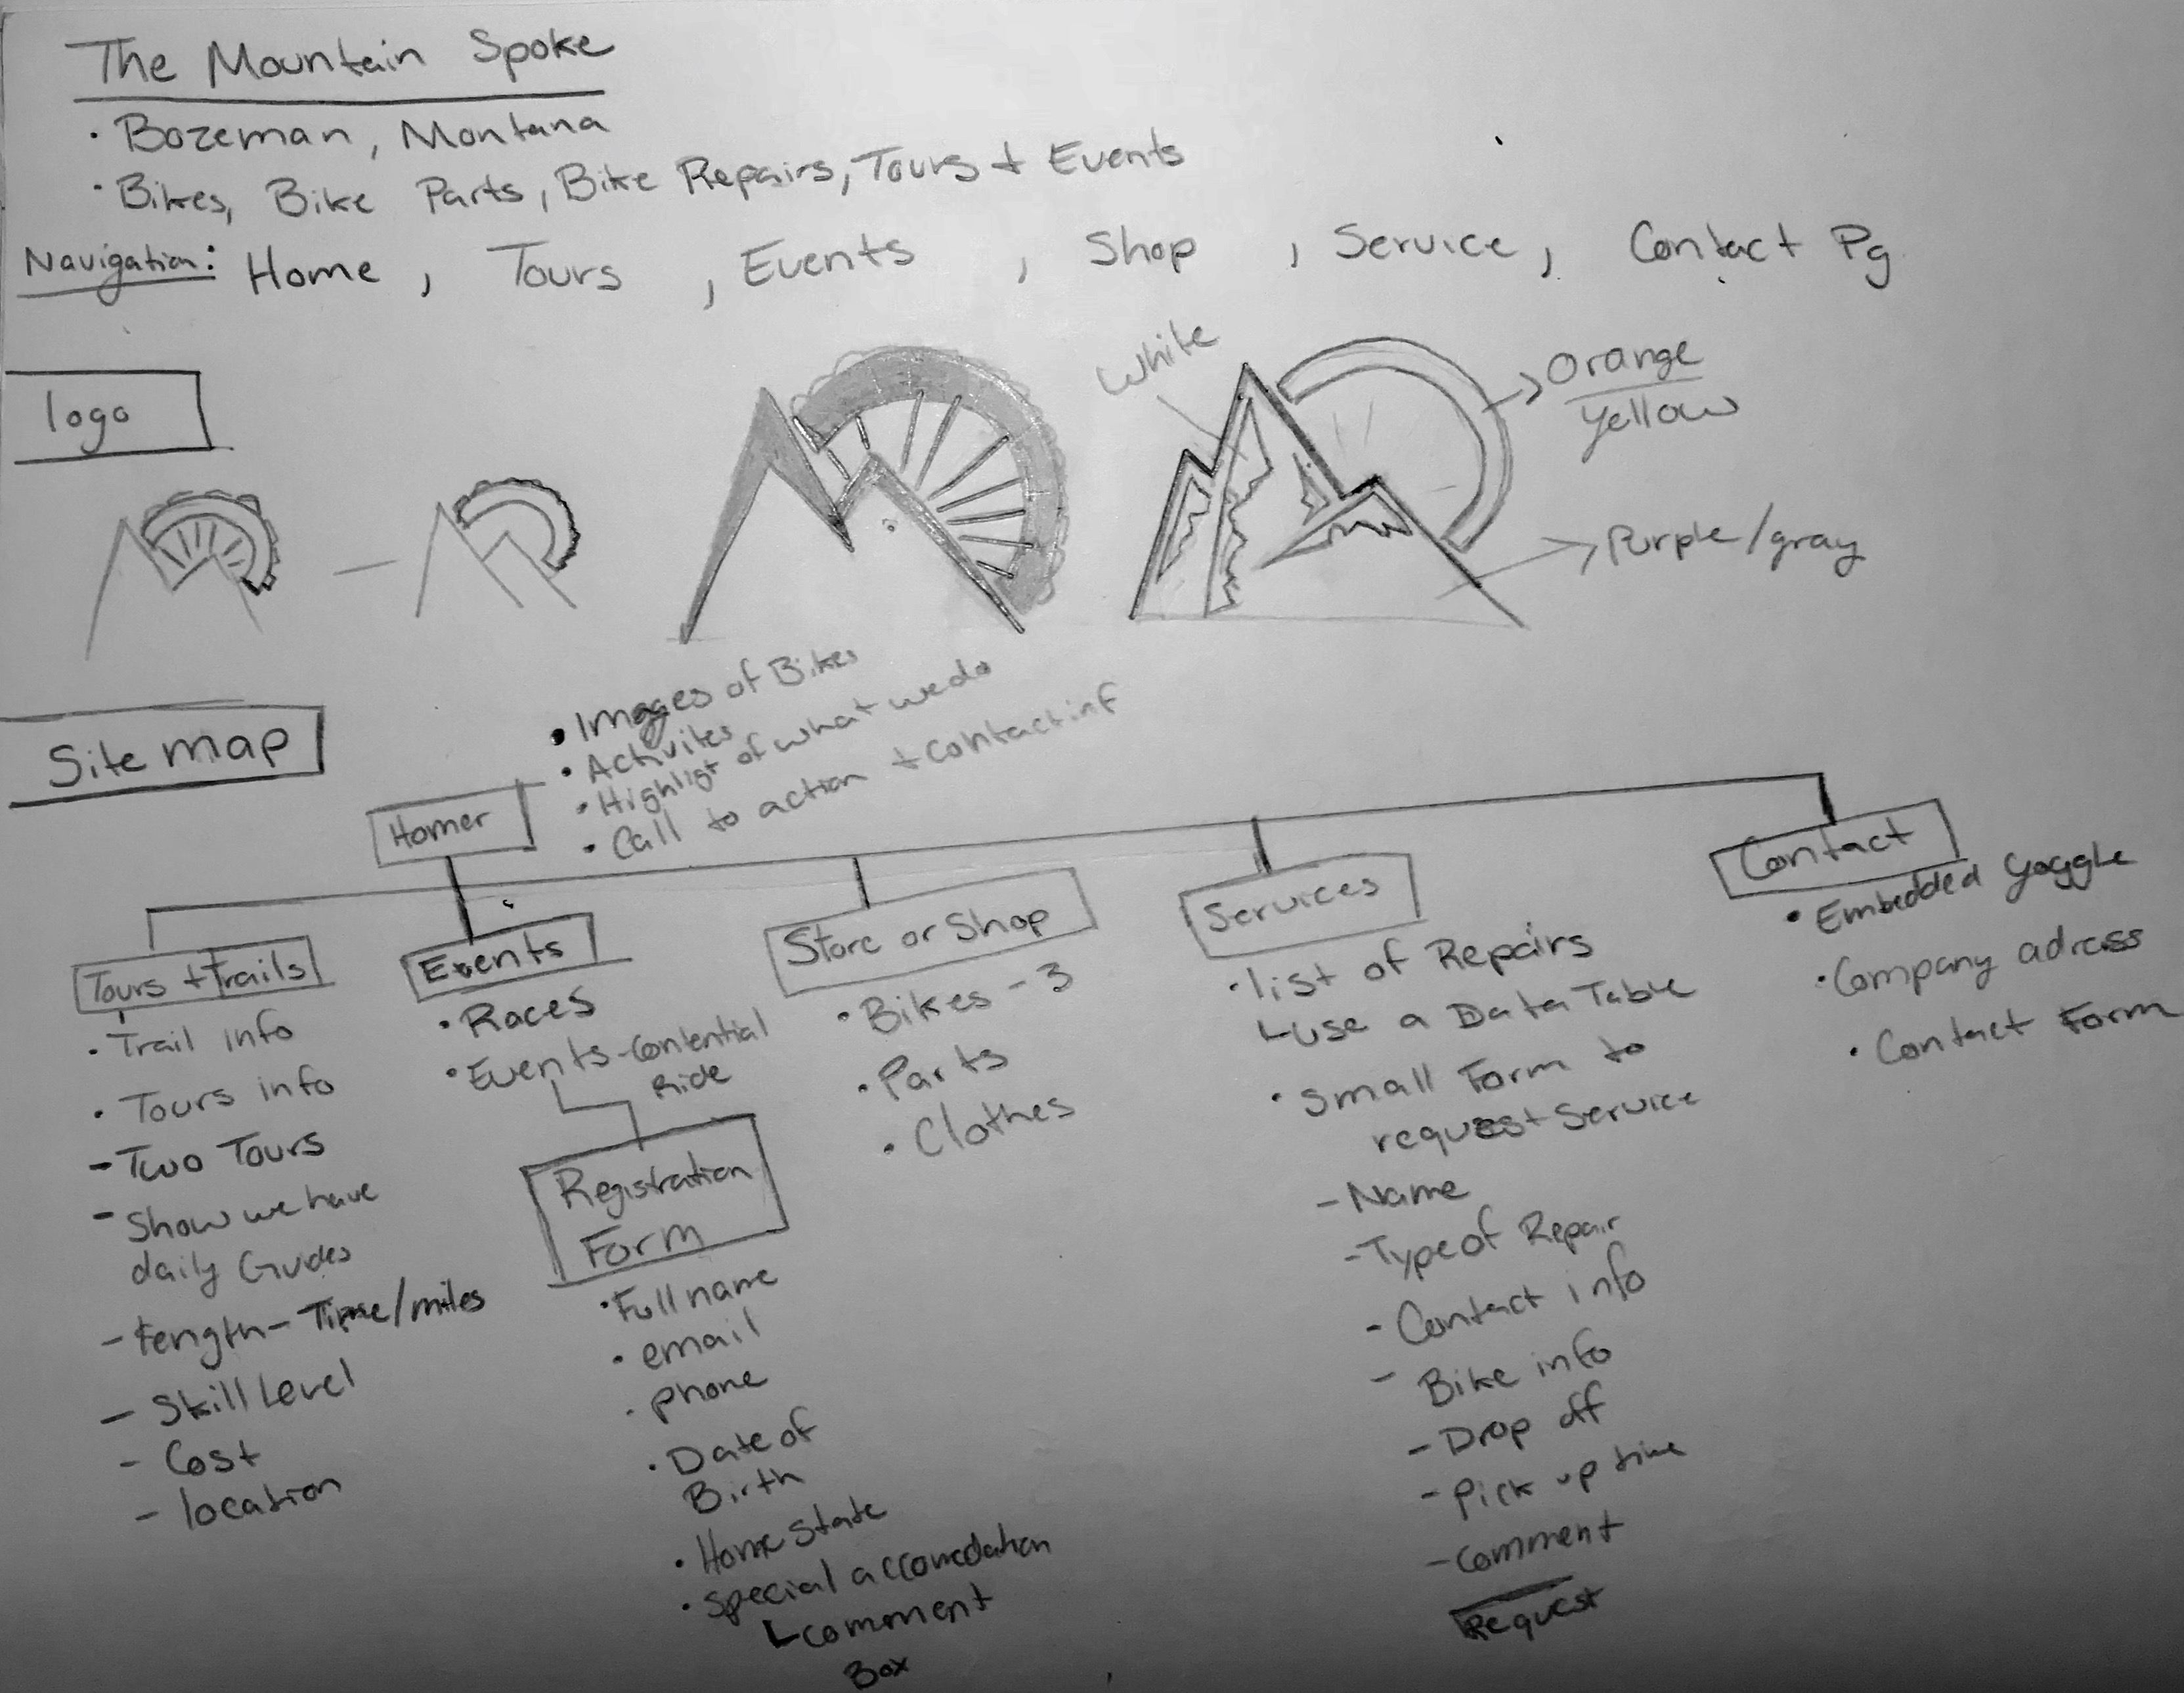 The Mountain Spoke
· Bozeman, Montana
· Bikes, Bike Parts, Bike Repairs, Tours + Events
Navigation: Home , Tours , Events , Shop , Service , Contact Pg
logo
White
Orange
yellow
Purple/gray
Site map
• Images of Bikes
• Activites
• Highligt of what we do
• Call to action + contact inf
Home
Tours + Trails
· Trail info
· Tours info
- Two Tours
- Show we have
daily Guides
- Length - Time/miles
- Skill Level
- Cost
- location
Events
· Races
· Events - Contential
Ride
Registration
Form
· Full name
· email
· phone
· Date of
Birth
· Home State
· special accomedation
comment
Box
Store or Shop
· Bikes - 3
· Parts
· Clothes
Services
· list of Repairs
use a Data Table
· small Form to
request service
- Name
- Type of Repair
- Contact info
- Bike info
- Drop off
- Pick up time
- Comment
Request
Contact
• Embedded google
· Company adress
· Contact Form